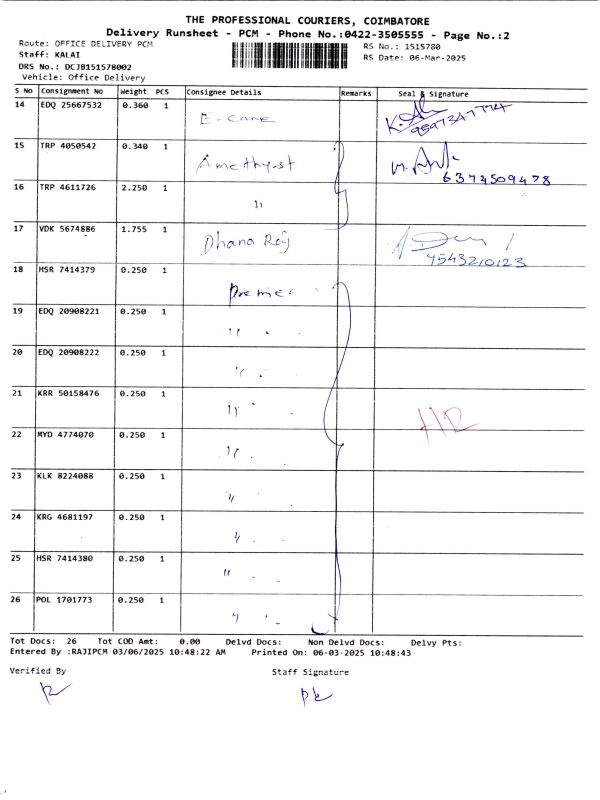 THE PROFESSIONAL COURIERS, COIMBATORE
Delivery Runsheet - PCM - Phone No.:0422-3505555 - Page No.:2
Route: OFFICE DELIVERY PCM
RS No.: 1515780
Staff: KALAI
RS Date: 06-Mar-2025
DRS No.: DCJB151578002
Vehicle: Office Delivery
S No Consignment No Weight PCS Consignee Details Remarks Seal & Signature
14 EDQ 25667532 0.360 1 E-Cane
9597347774
15 TRP 4050542 0.340 1 Amethyst
6374509478
16 TRP 4611726 2.250 1 "
17 VDK 5674886 1.755 1 Dhana Raj
9543210123
18 HSR 7414379 0.250 1 Premier
19 EDQ 20908221 0.250 1 "
20 EDQ 20908222 0.250 1 "
21 KRR 50158476 0.250 1 "
22 MYD 4774070 0.250 1 "
23 KLK 8224088 0.250 1 "
24 KRG 4681197 0.250 1 "
25 HSR 7414380 0.250 1 "
26 POL 1701773 0.250 1 "
Tot Docs: 26 Tot COD Amt: 0.00 Delvd Docs: Non Delvd Docs: Delvy Pts:
Entered By :RAJIPCM 03/06/2025 10:48:22 AM Printed On: 06-03-2025 10:48:43
Verified By Staff Signature